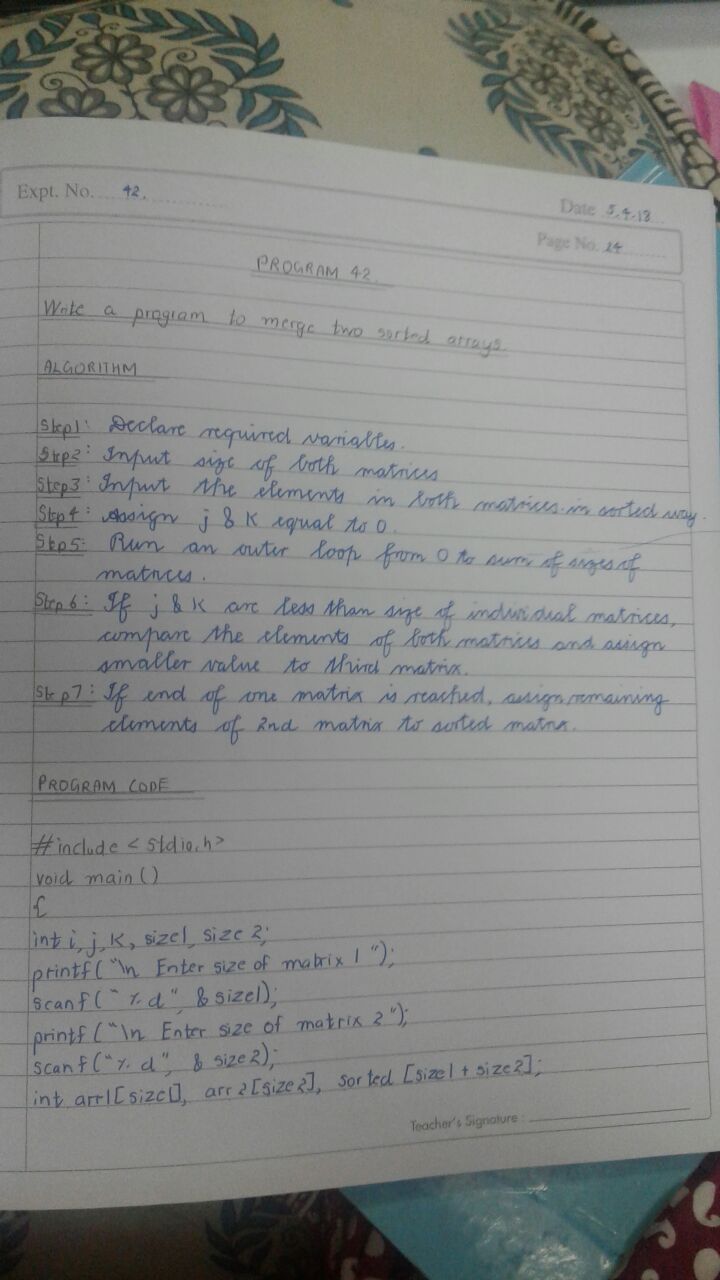 Expt. No. 42.
Date 5.4.18
Page No. 24
PROGRAM 42.
Write a program to merge two sorted arrays
ALGORITHM
Step1: Declare required variables.
Step2: Input size of both matrices
Step3: Input the elements in both matrices in sorted way.
Step4: Assign j & k equal to 0.
Step5: Run an outer loop from 0 to sum of sizes of
matrices.
Step6: If j & k are less than size of individual matrices,
compare the elements of both matrices and assign
smaller value to third matrix.
Step7: If end of one matrix is reached, assign remaining
elements of 2nd matrix to sorted matrix.
PROGRAM CODE
#include <stdio.h>
void main()
{
int i, j, k, size1, size2;
printf("\n Enter size of matrix 1 ");
scanf("%d", &size1);
printf("\n Enter size of matrix 2");
scanf("%d", &size2);
int arr1[size1], arr2[size2], sorted [size1 + size2];
Teacher's Signature :